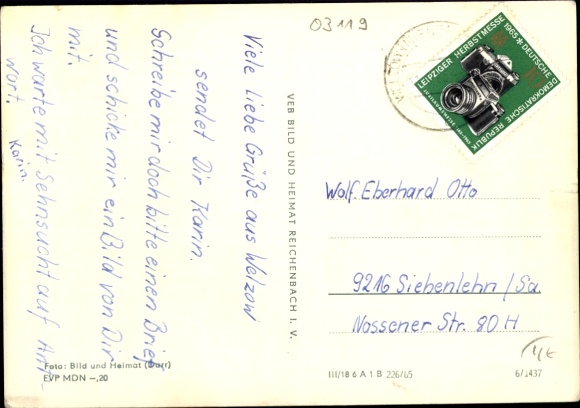 03119
Viele liebe Grüße aus Welzow
sendet Dir Karin.
Schreibe mir doch bitte einen Brief
und schicke mir ein Bild von Dir
mit.
Ich warte mit Sehnsucht auf Ant-
wort.
Karin.
Foto: Bild und Heimat (Darr)
EVP MDN –,20
VEB BILD UND HEIMAT REICHENBACH I. V.
LEIPZIGER HERBSTMESSE 1965 ✶ DEUTSCHE
DEMOKRATISCHE REPUBLIK
10
Wolf. Eberhard Otto
9216 Siebenlehn/Sa.
Nossener Str. 80 H
III/18 6 A 1 B 226/65
6/1437